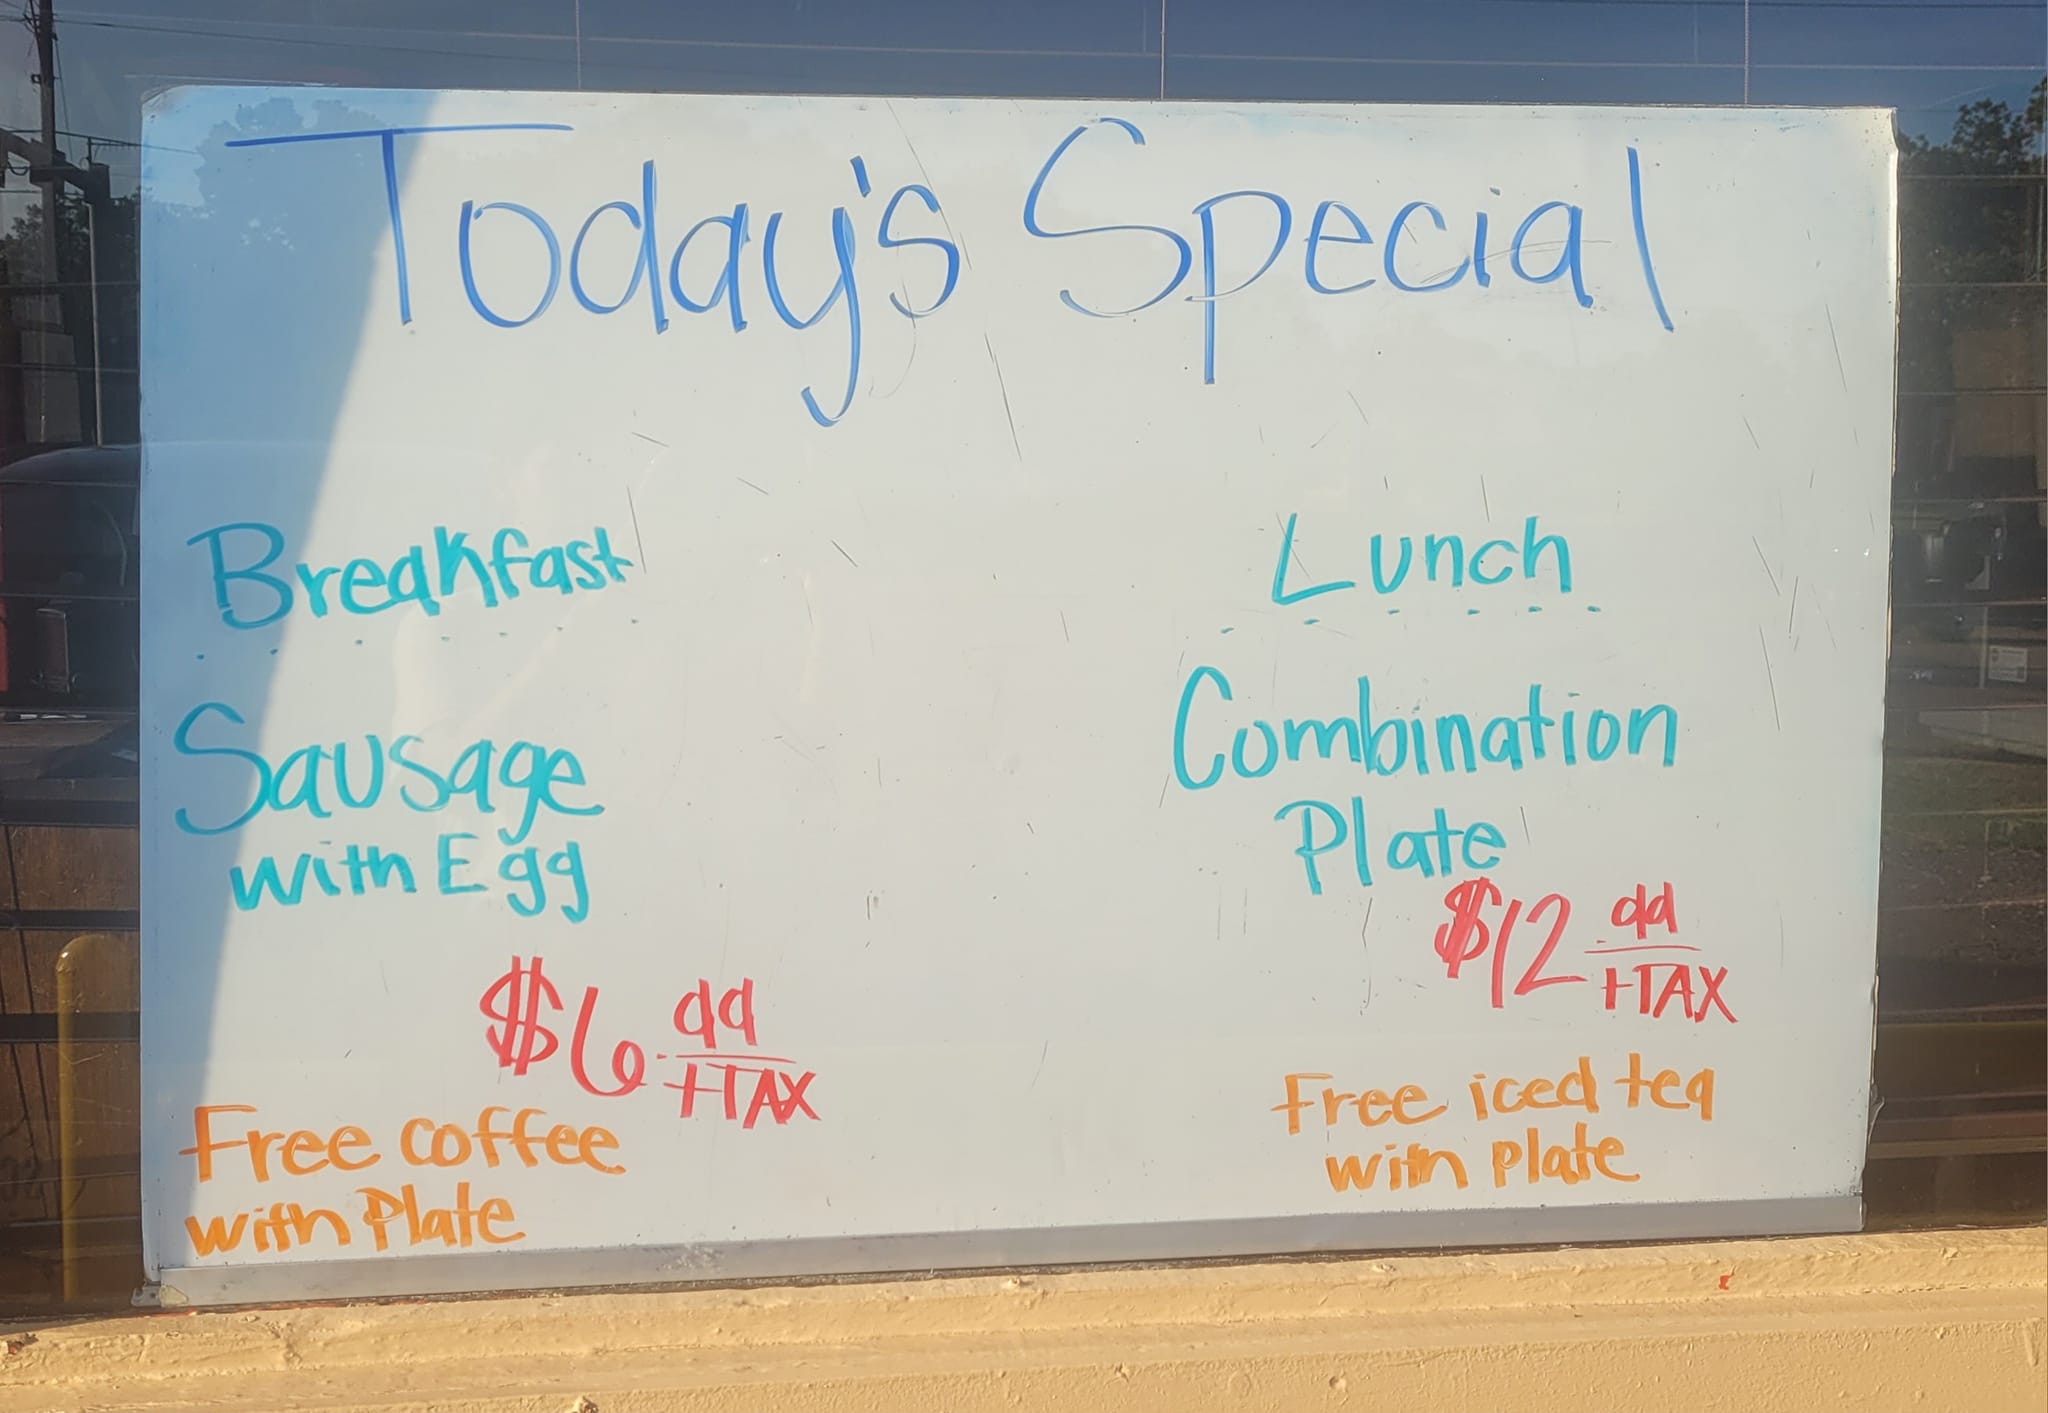 Today's Special
Breakfast
Sausage
with Egg
$6.99
+TAX
Free coffee
with Plate
Lunch
Combination
Plate
$12.99
+TAX
Free iced tea
with plate